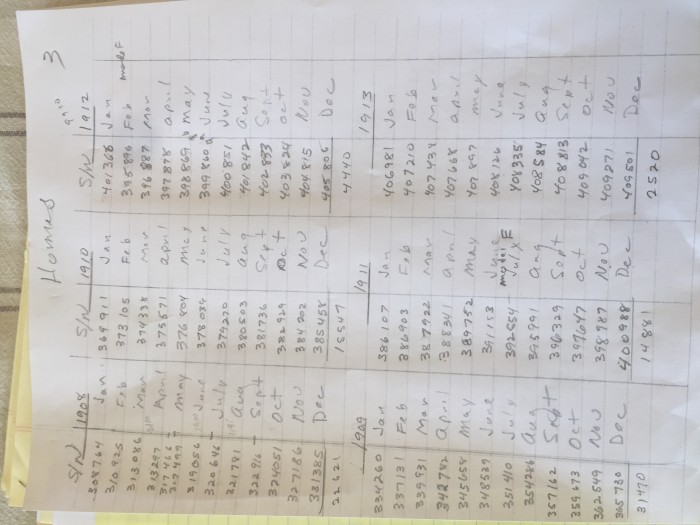 Homes 3
S/N 1908
308764 Jan
310925 Feb
313086 Mar
313297
317466 April
317499 May
319056 June
320646 July
321781 aug
322916 Sept
324051 Oct
327186 Nov
331385 Dec
22621
S/N 1910
369911 Jan
373105 Feb
374338 Mar
375571 april
376804 May
378034 June
379270 July
380503 aug
381736 Sept
382929 Oct
384202 Nov
385458 Dec
15547
S/N 1912
401368 Jan
395896 Feb model F
396887 Mar
397878 april
398869 may
399860 June
400851 July
401842 aug
402833 Sept
403824 oct
404815 Nov
405806 Dec
4440
1909
334260 Jan
337131 Feb
339931 Mar
342782 April
345658 may
348539 June
351410 July
354286 Aug
357162 Sept
359673 Oct
362549 Nov
365730 Dec
31470
1911
386107 Jan
386903 Feb
387922 Mar
388341 april
389752 may
391113 June
model F
392554 July
395991 aug
396329 Sept
397647 oct
398787 Nov
400988 Dec
14881
1913
406981 Jan
407210 Feb
407439 Mar
407668 april
407897 may
408126 June
408335 July
408584 aug
408813 Sept
409042 oct
409271 Nov
409501 Dec
2520